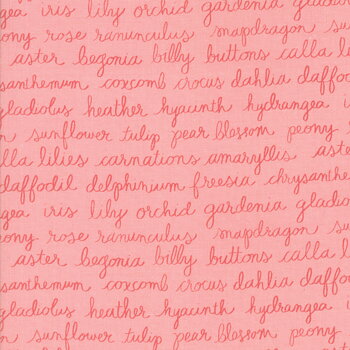 gea iris lily orchid gardenia gladio
eony rose ranunculus snapdragon su
aster begonia billy buttons calla l
santhemum coxcomb crocus dahlia daffo
gladiolus heather hyacinth hydrangea i
n sunflower tulip pear blossom peony
lla lilies carnations amaryllis aste
daffodil delphinium freesia chrysanthe
gea iris lily orchid gardenia gladio
ony rose ranunculus snapdragon su
aster begonia billy buttons calla l
santhemum coxcomb crocus dahlia daffo
gladiolus heather hyacinth hydrangea i
n sunflower tulip pear blossom peony